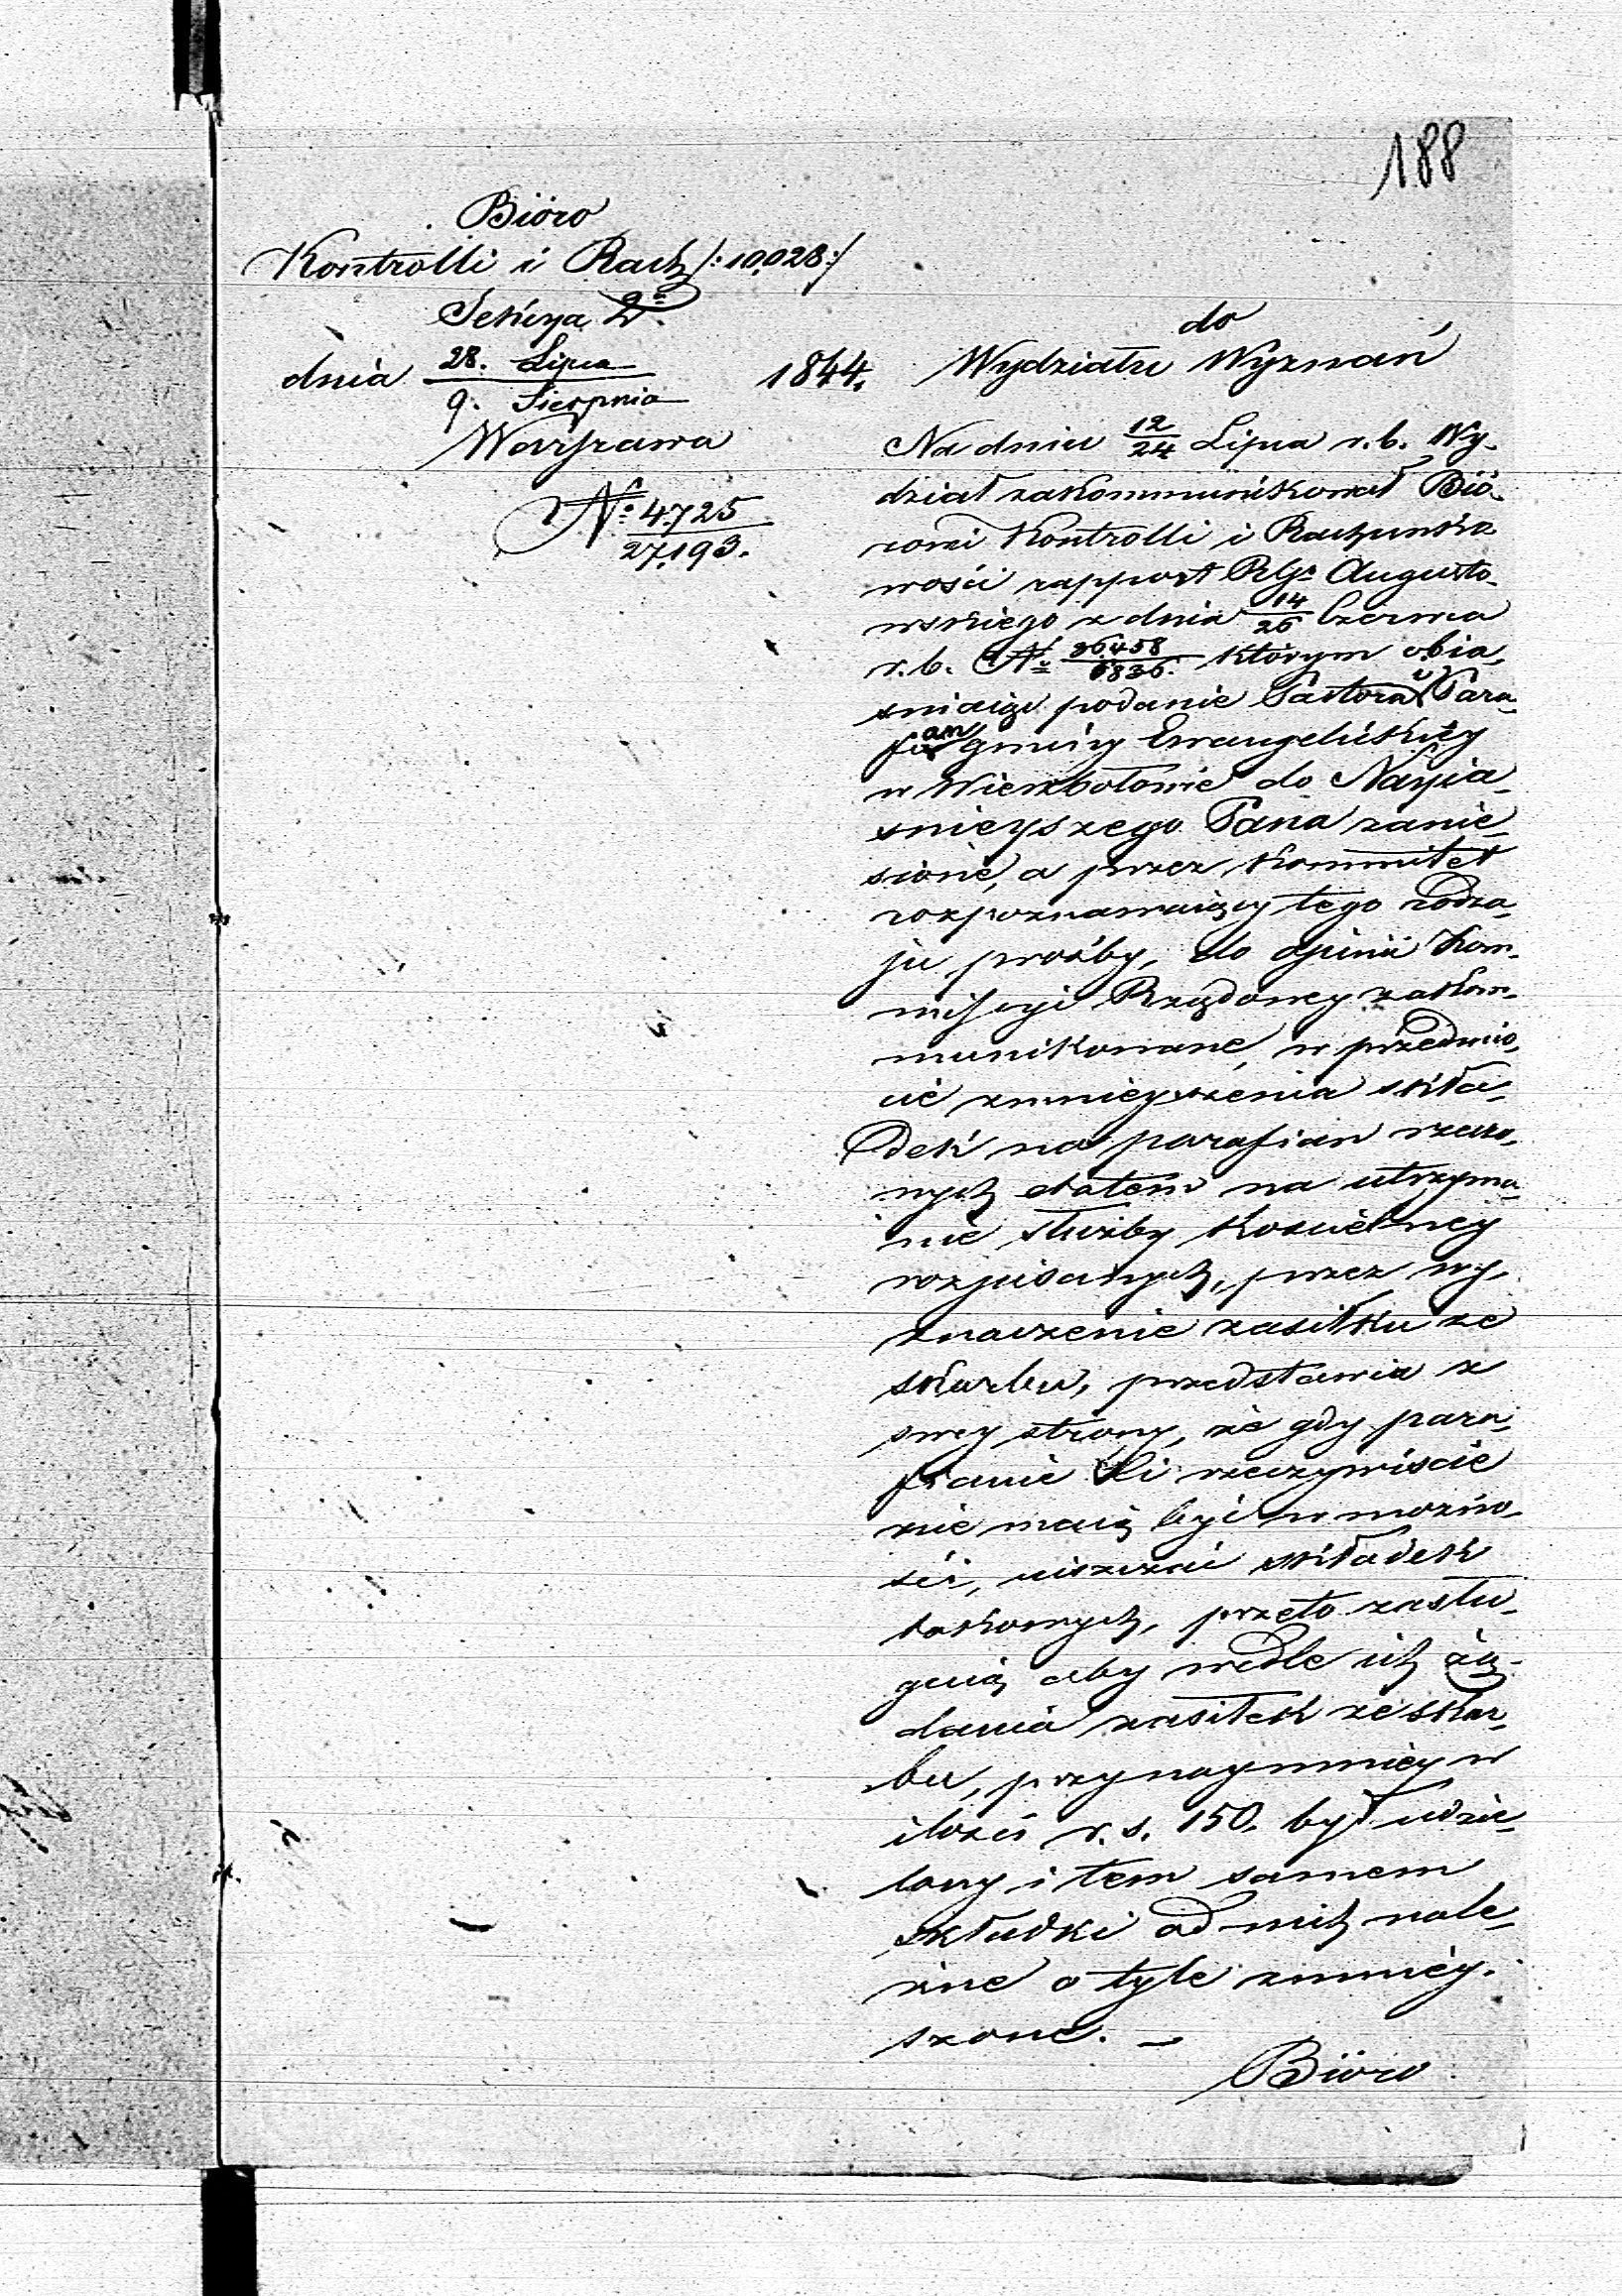 188
Bióro
Kontrolli i Rach /:10,028:/
Sekcya 2ª
dnia 28. Lipca / 9. Sierpnia 1844.
Warszawa
Nº 4725 / 27,193.
do
Wydziału Wyznań
Na dniu 12/24 Lipca r.b. Wy-
dział zakommunikował Bió-
rowi Kontrolli i Rachunko
wości rapport RGo Augusto-
wskiego z dnia 14/26 Czerwca
r.b. Nº 36458/6836. którym obia-
śniaiąc podanie Pastora i Para-
fian gminy Ewangelickiey
w Wierzbołowie do Nayia-
śnieyszego Pana zanie-
sione, a przez Kommitet
rozpoznawaiący tego rodza-
ju prośby, do opinii Kom-
missyi Rządowey zakom-
munikowane, w przedmio-
cie zmnieyszenia skła-
dek na parafian rzeczo-
nych etatem na utrzyma-
nie służby Kościelney
rozpisanych, przez wy-
znaczenie zasiłku ze
skarbu, przedstawia z
swey strony, że gdy para-
fianie Ci rzeczywiście
nie maią być w możno-
ści, uiszczać składek
takowych, przeto zasłu-
guią aby wedle ich żą-
dania zasiłek ze skar-
bu, przynaymniey w
ilości r.s. 150. był udzie-
lony i tem samem
składki od nich nale-
żne o tyle zmniey-
szone. —
Bióro